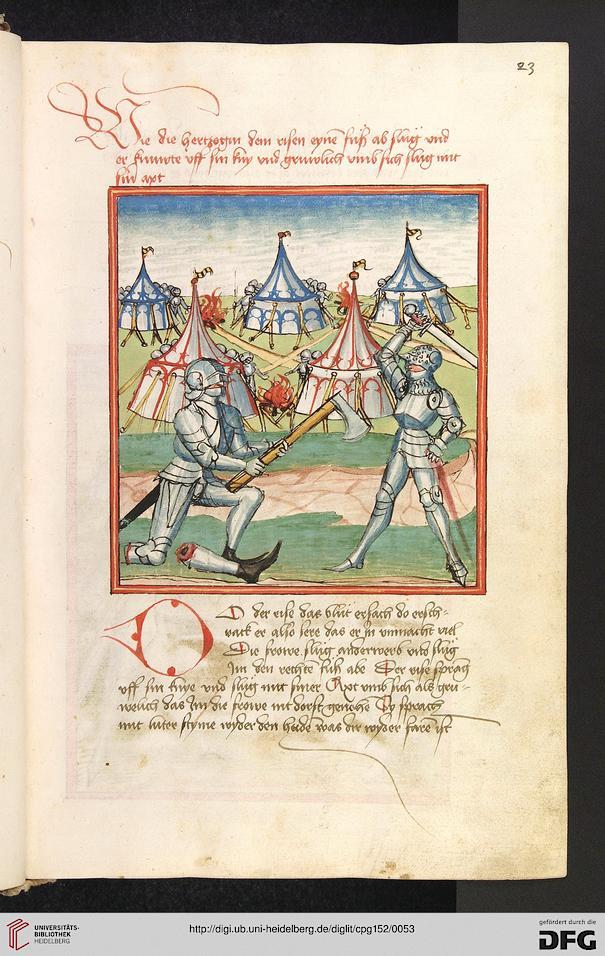 23
Wie die hertzogin dem risen eynē fuß ab slug vnd
er knuwte vff sin kny vnd gruwlich vmb sich slug mit
siner axt
DO der rise das blut ersach do ersch-
rack er also sere das er in vnmacht viel
Die frowe slug anderwerb vnd slug
Im den rechten fuß abe Der rise sprāg
vff sin knye vnd slug mit siner Axt vmb sich als gru-
welich das Im die frowe nit dorst genehē Sy sprach
mit luter styme wyder den heidē was dir wyder farē ist
UNIVERSITÄTS-
BIBLIOTHEK
HEIDELBERG
http://digi.ub.uni-heidelberg.de/diglit/cpg152/0053
gefördert durch die
DFG